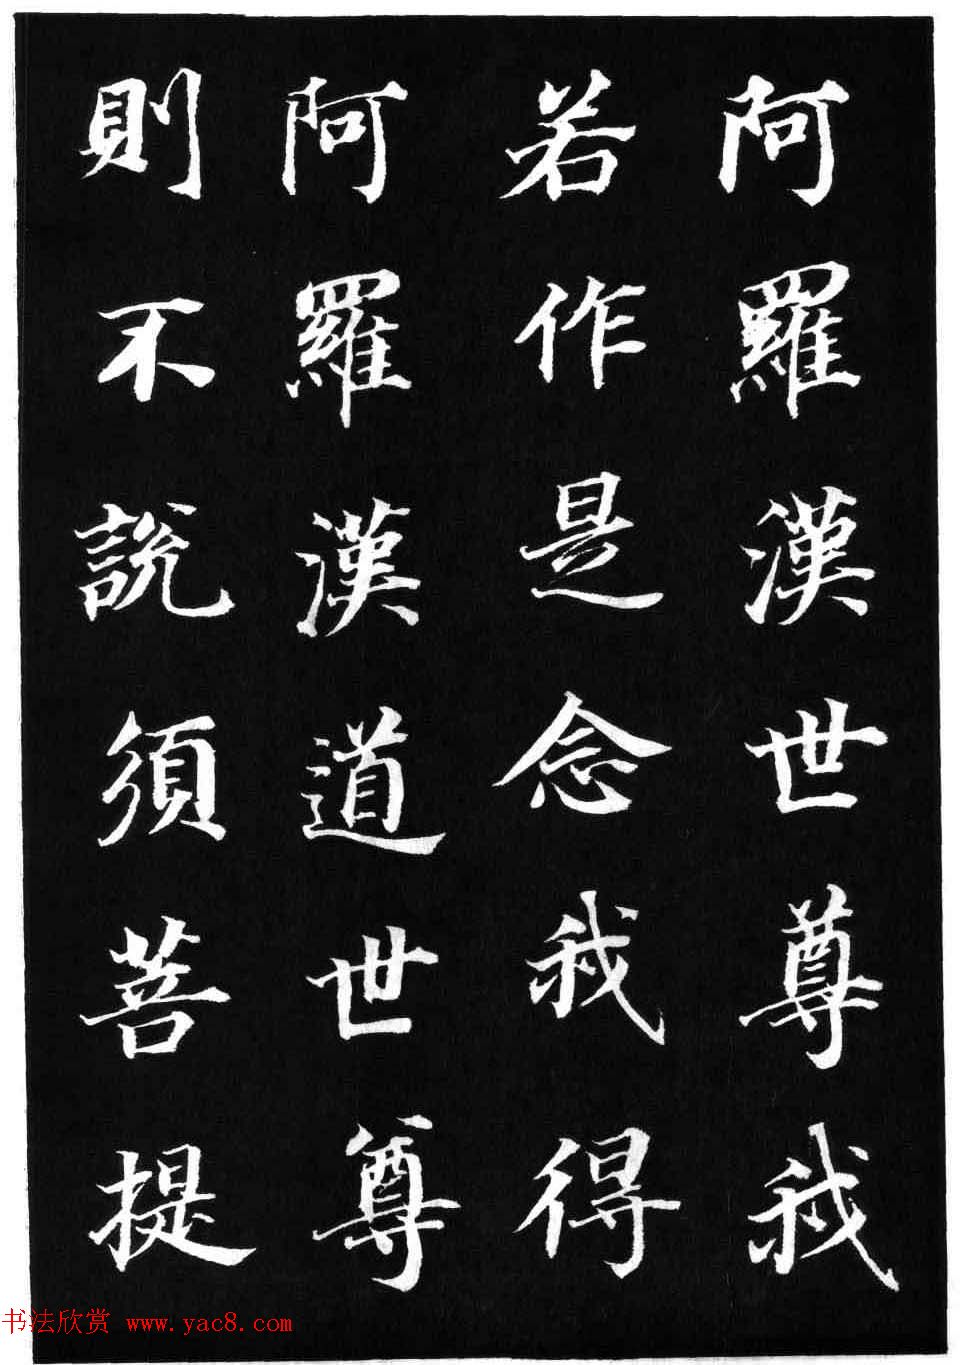 阿羅漢世尊我
若作是念我得
阿羅漢道世尊
則不說須菩提
书法欣赏 www.yac8.com